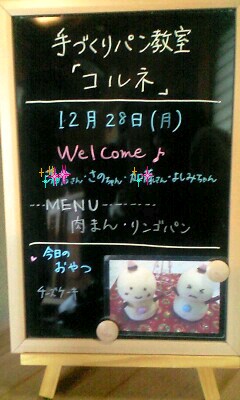 手づくりパン教室
「コルネ」
12月28日(月)
Welcome♪
さん・さのちゃん・加藤さん・よしみちゃん
---MENU---------
肉まん・リンゴパン
今日の
おやつ
チーズケーキ